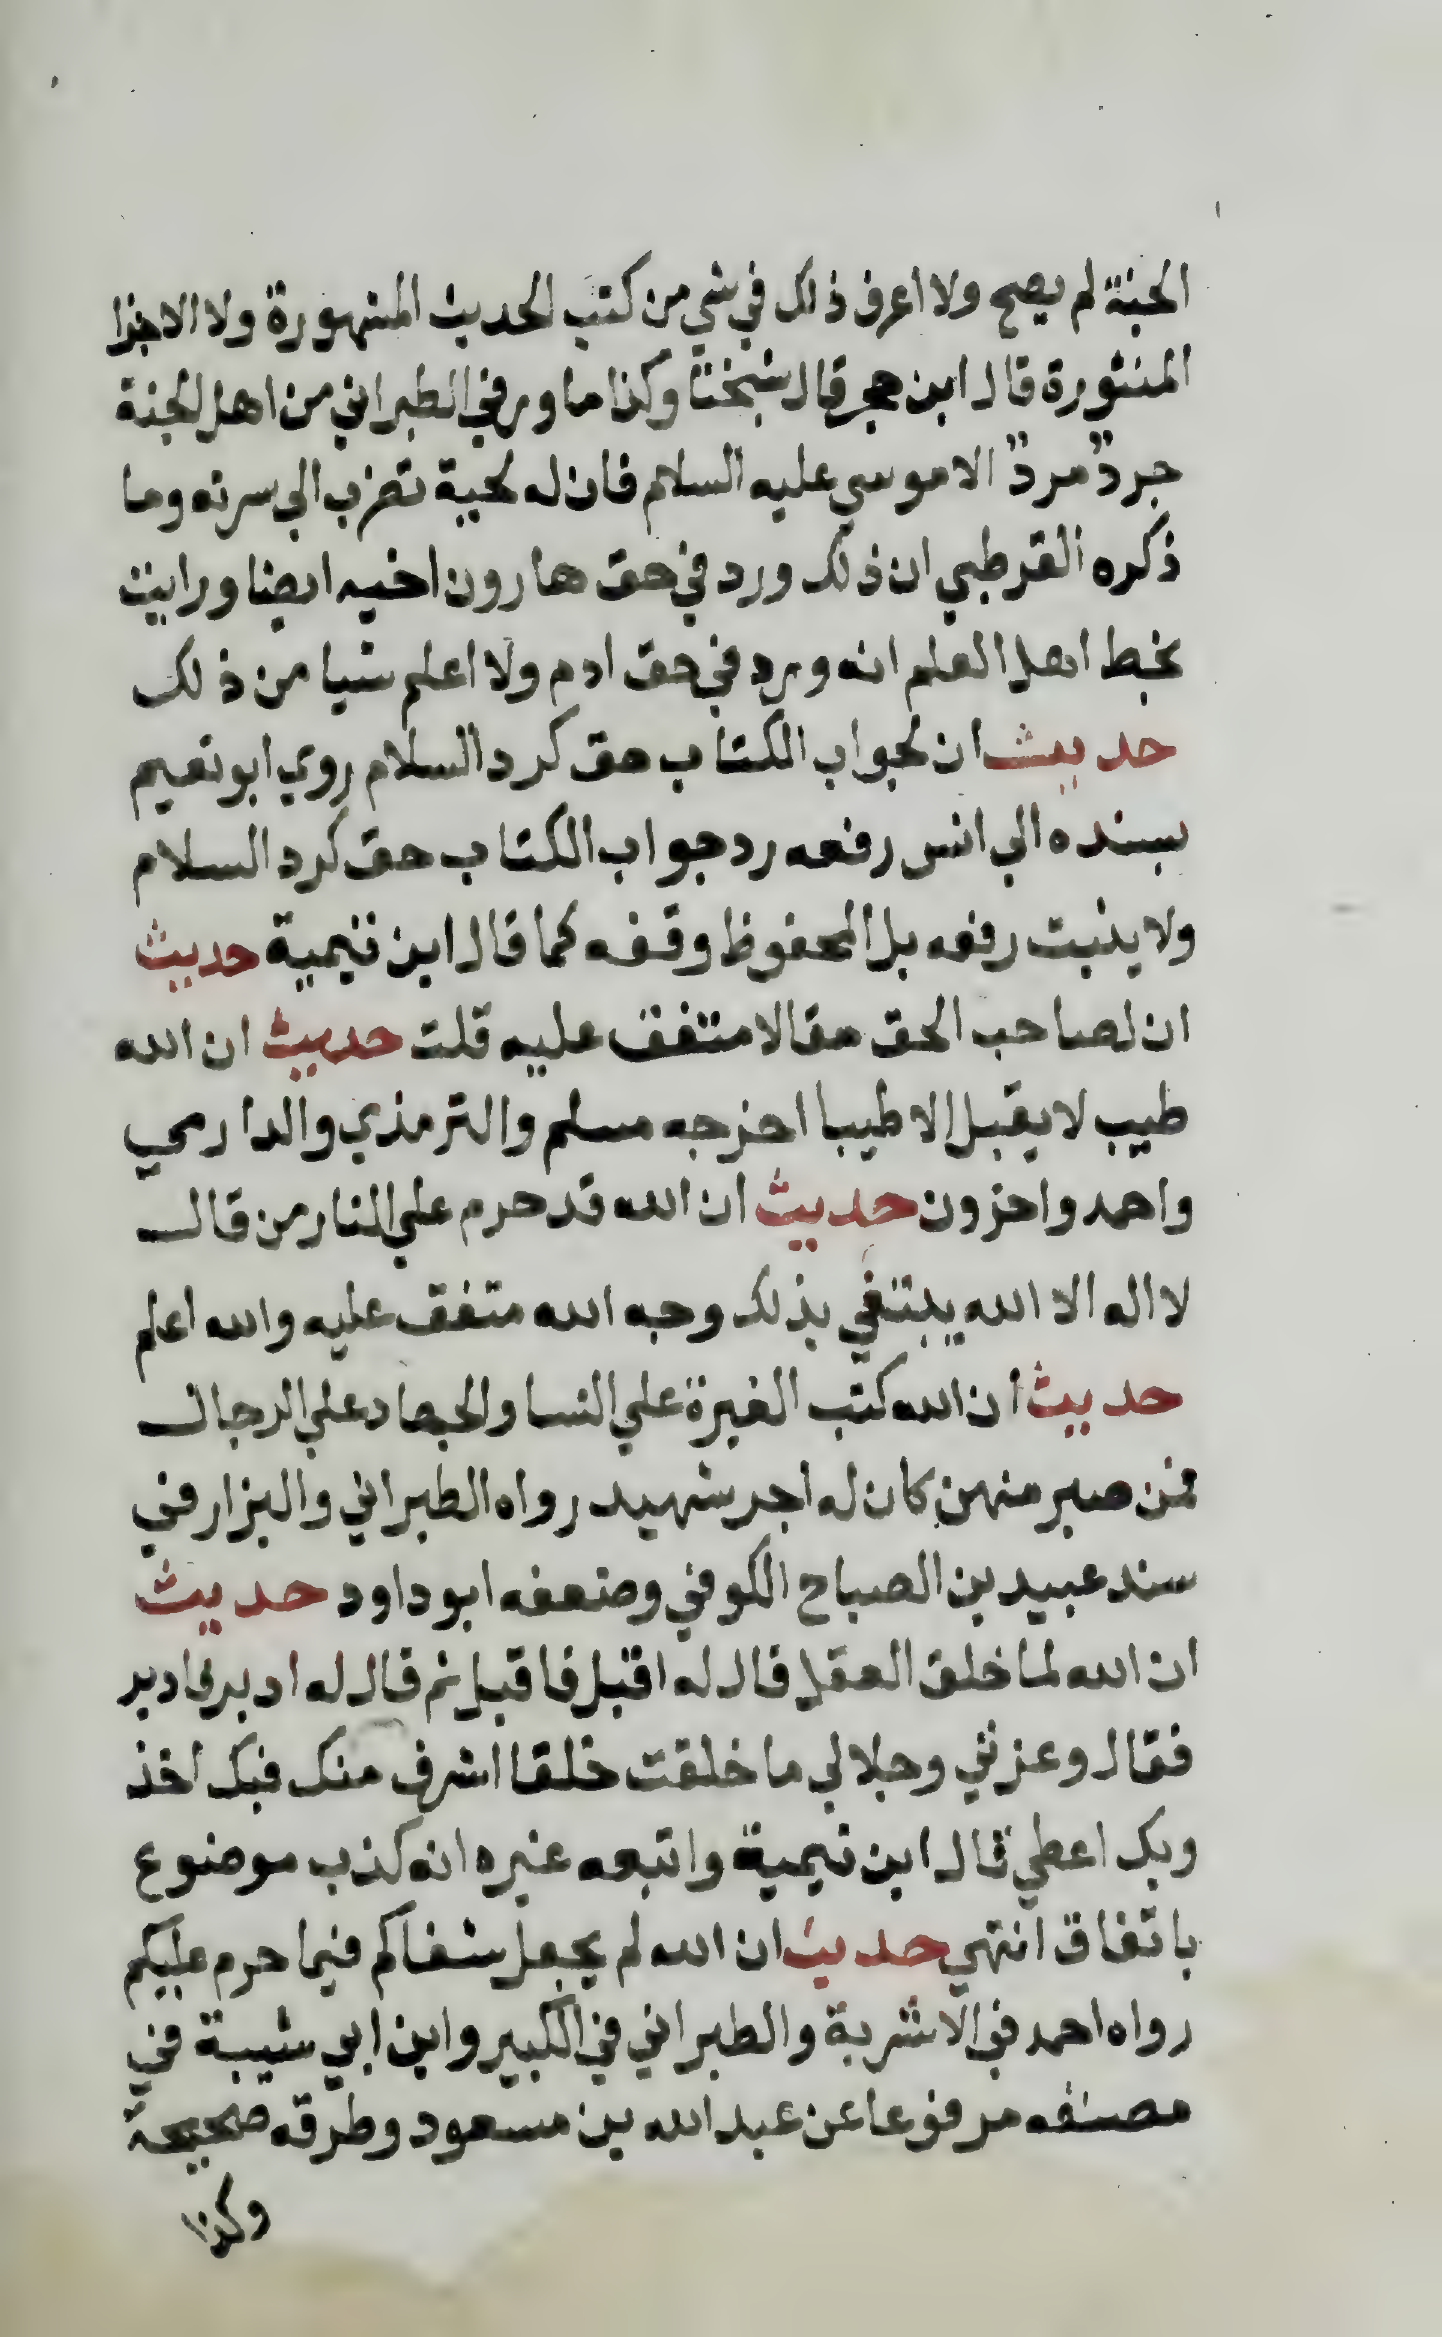 الجنة لم يصح ولا اعرف ذلك في شي من كتب الحديث المشهورة ولا الاجزا
المنثورة قال ابن حجر قال شيخنا وكذا ما ورد في الطبراني من اهل الجنة
جرد مرد الا موسي عليه السلام فان له لحية تضرب الي سرته وما
ذكره القرطبي ان ذلك ورد في حق هارون اخيه ايضا ورايت
بخط اهل العلم انه ورد في حق ادم ولا اعلم شيا من ذلك
حديث ان لجواب الكتاب حق كرد السلام روي ابو نعيم
بسنده الي انس رفعه رد جواب الكتاب حق كرد السلام
ولا يثبت رفعه بل المحفوظ وقفه كما قال ابن تيمية حديث
ان لصاحب الحق مقالا متفق عليه قلت حديث ان الله
طيب لا يقبل الا طيبا اخرجه مسلم والترمذي والدارمي
واحمد واخرون حديث ان الله قد حرم علي النار من قال
لا اله الا الله يبتغي بذلك وجه الله متفق عليه والله اعلم
حديث ان الله كتب الغيرة علي النسا والجهاد علي الرجال
فمن صبر منهن كان له اجر شهيد رواه الطبراني والبزار في
سند عبيد بن الصباح الكوفي وضعفه ابو داود حديث
ان الله لما خلق العقل قال له اقبل فاقبل ثم قال له ادبر فادبر
فقال وعزتي وجلالي ما خلقت خلقا اشرف منك فبك اخذ
وبك اعطي قال ابن تيمية واتبعه غيره انه كذب موضوع
باتفاق انتهي حديث ان الله لم يجعل شفاكم فيما حرم عليكم
رواه احمد في الاشربة والطبراني في الكبير وابن ابي شيبة في
مصنفه مرفوعا عن عبد الله بن مسعود وطرقه صحيحة
وكذا